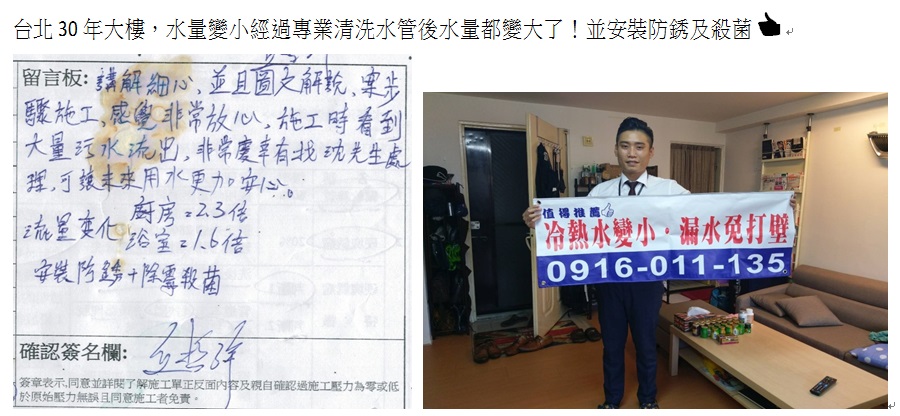 台北 30 年大樓，水量變小經過專業清洗水管後水量都變大了！並安裝防銹及殺菌
留言板: 講解細心，並且圖文解說，案步
驟施工，感覺非常放心，施工時看到
大量污水流出，非常慶幸有找沈先生處
理，可讓未來用水更加安心。
流量変化 廚房=2.3倍
浴室=1.6倍
安裝防銹+除霉殺菌
確認簽名欄:
簽章表示,同意並詳閱了解施工單正反面內容及親自確認過施工壓力為零或低
於原始壓力無誤且同意施工者免責。
值得推薦
冷熱水變小，漏水免打壁
0916-011-135